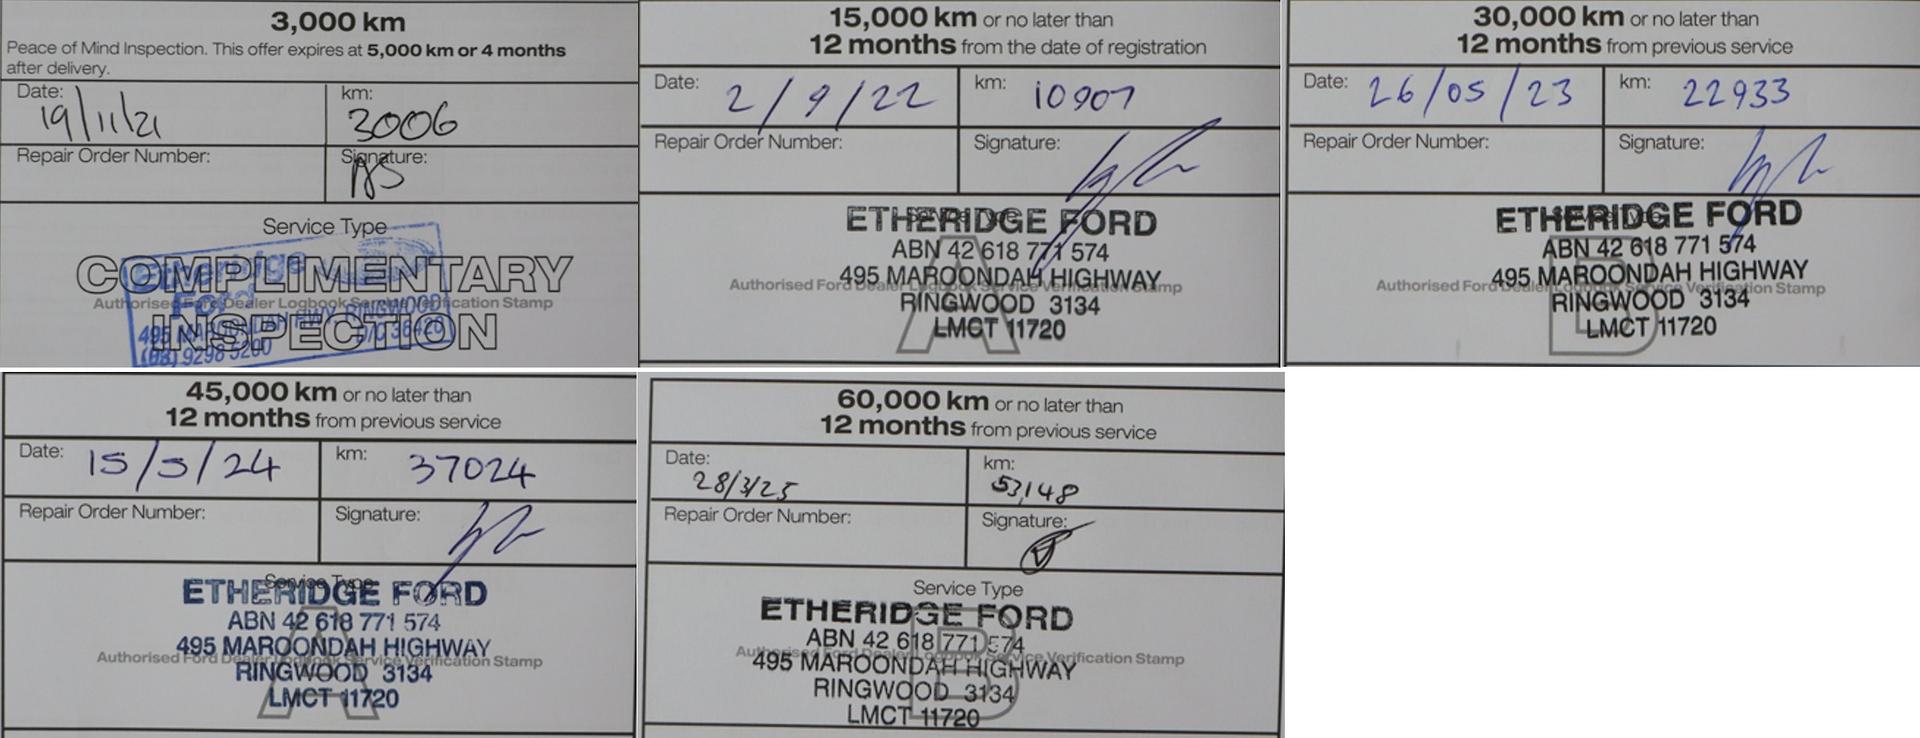 3,000 km
Peace of Mind Inspection. This offer expires at 5,000 km or 4 months
after delivery.
Date: 19/11/21
km: 3006
Repair Order Number:
Signature:
Service Type
COMPLIMENTARY
INSPECTION
Authorised Ford Dealer Logbook Service Verification Stamp
Etheridge
Ford
495 MAROONDAH HWY RINGWOOD
(03) 9298 5200
15,000 km or no later than
12 months from the date of registration
Date: 2/9/22
km: 10907
Repair Order Number:
Signature:
Service Type
A
Authorised Ford Dealer Logbook Service Verification Stamp
ETHERIDGE FORD
ABN 42 618 771 574
495 MAROONDAH HIGHWAY
RINGWOOD 3134
LMCT 11720
30,000 km or no later than
12 months from previous service
Date: 26/05/23
km: 22933
Repair Order Number:
Signature:
Service Type
B
Authorised Ford Dealer Logbook Service Verification Stamp
ETHERIDGE FORD
ABN 42 618 771 574
495 MAROONDAH HIGHWAY
RINGWOOD 3134
LMCT 11720
45,000 km or no later than
12 months from previous service
Date: 15/5/24
km: 37024
Repair Order Number:
Signature:
Service Type
A
Authorised Ford Dealer Logbook Service Verification Stamp
ETHERIDGE FORD
ABN 42 618 771 574
495 MAROONDAH HIGHWAY
RINGWOOD 3134
LMCT 11720
60,000 km or no later than
12 months from previous service
Date: 28/3/25
km: 53,148
Repair Order Number:
Signature:
Service Type
B
Authorised Ford Dealer Logbook Service Verification Stamp
ETHERIDGE FORD
ABN 42 618 771 574
495 MAROONDAH HIGHWAY
RINGWOOD 3134
LMCT 11720